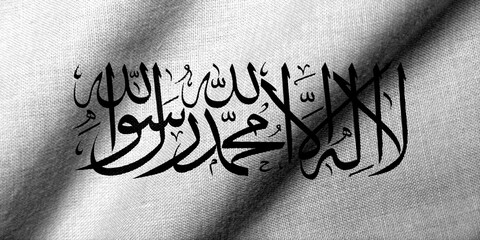 لا إله إلا الله محمد رسول الله